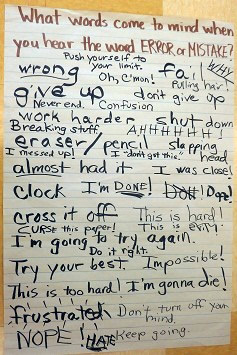 What words come to mind when
you hear the word ERROR or MISTAKE?
Push yourself to
your limit.
wrong
Oh, C'mon!
fail
WHY
Pulling hair
give up
don't give up
Never end.
Confusion
work harder
shut down
Breaking stuff
AHHHHHH!
eraser/pencil
slapping
head
I messed up!
I don't get this!
almost had it
I was close!
clock
I'm DONE!
DOH! Dope!
cross it off
This is hard!
CURSE this paper!
This is EVIL!
I'm going to try again.
Do it right.
Try your best.
Impossible!
This is too hard!
I'm gonna die!
frustrated
Don't turn off your
mind
NOPE!
HATE
Keep going.